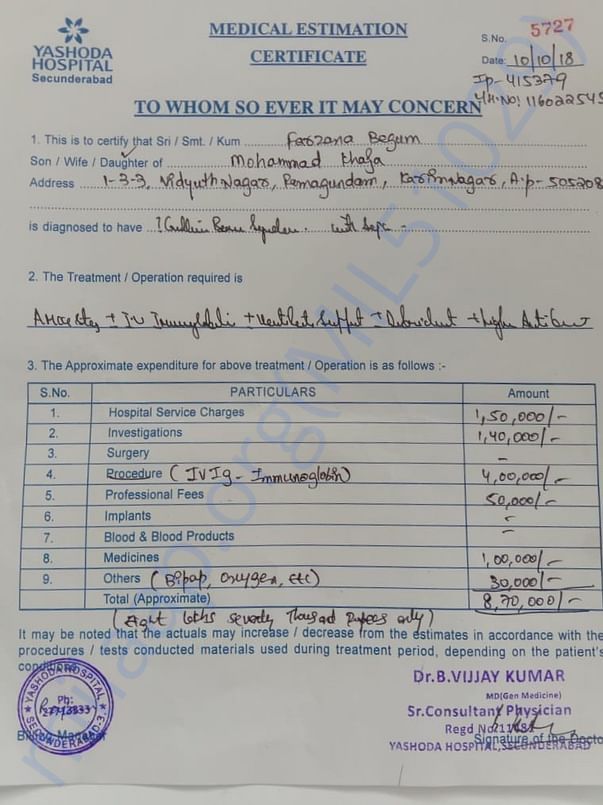 YASHODA
HOSPITAL
Secunderabad
MEDICAL ESTIMATION
CERTIFICATE
S.No. 5727
Date: 10/10/18
Ip-415379
TO WHOM SO EVER IT MAY CONCERN
1. This is to certify that Sri / Smt. / Kum Farzana Begum
Son / Wife / Daughter of Mohammad Khaja
Address 1-3-3, Vidyuth Nagar, Ramagundam, Karimnagar, A.p-505208
is diagnosed to have with
2. The Treatment / Operation required is
+ ventilator support
3. The Approximate expenditure for above treatment / Operation is as follows :-
S.No. PARTICULARS Amount
1. Hospital Service Charges 1,50,000/-
2. Investigations 1,40,000/-
3. Surgery -
4. Procedure (IVIg - Immunoglobin) 4,00,000/-
5. Professional Fees 50,000/-
6. Implants -
7. Blood & Blood Products -
8. Medicines 1,00,000/-
9. Others (Bipap, oxygen, etc) 30,000/-
Total (Approximate) 8,70,000/-
(Eight lakhs seventy thousand rupees only)
It may be noted that the actuals may increase / decrease from the estimates in accordance with the
procedures / tests conducted materials used during treatment period, depending on the patient's
condition
YASHODA HOSPITAL
Ph:
SECUNDERABAD-3
Billing Manager
Dr.B.VIJAY KUMAR
MD(Gen Medicine)
Sr.Consultant Physician
Regd No.
Signature of the Doctor
YASHODA HOSPITAL, SECUNDERABAD